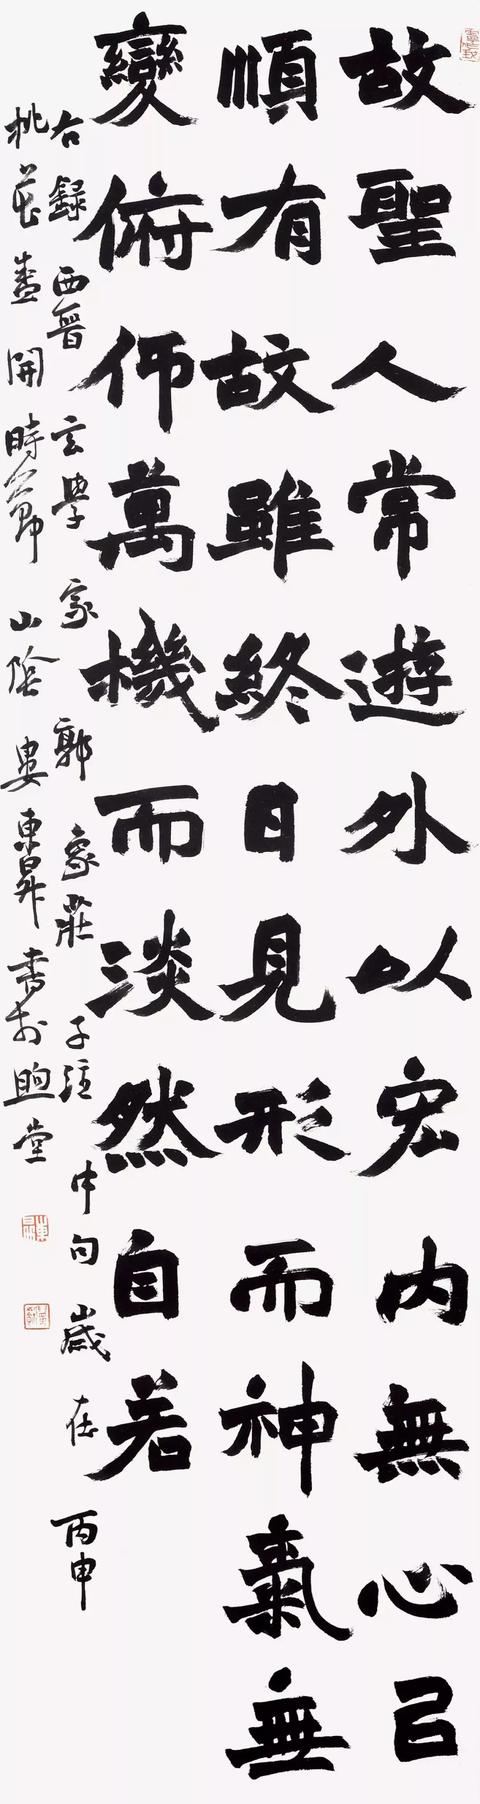 故聖人常遊外以宏内無心㠯
順有故雖終日見形而神氣無
變俯仰萬機而淡然自若
右録西晉玄學家郭象莊子註中句歲在丙申
桃花盛開時節山陰婁東昇書於煦堂